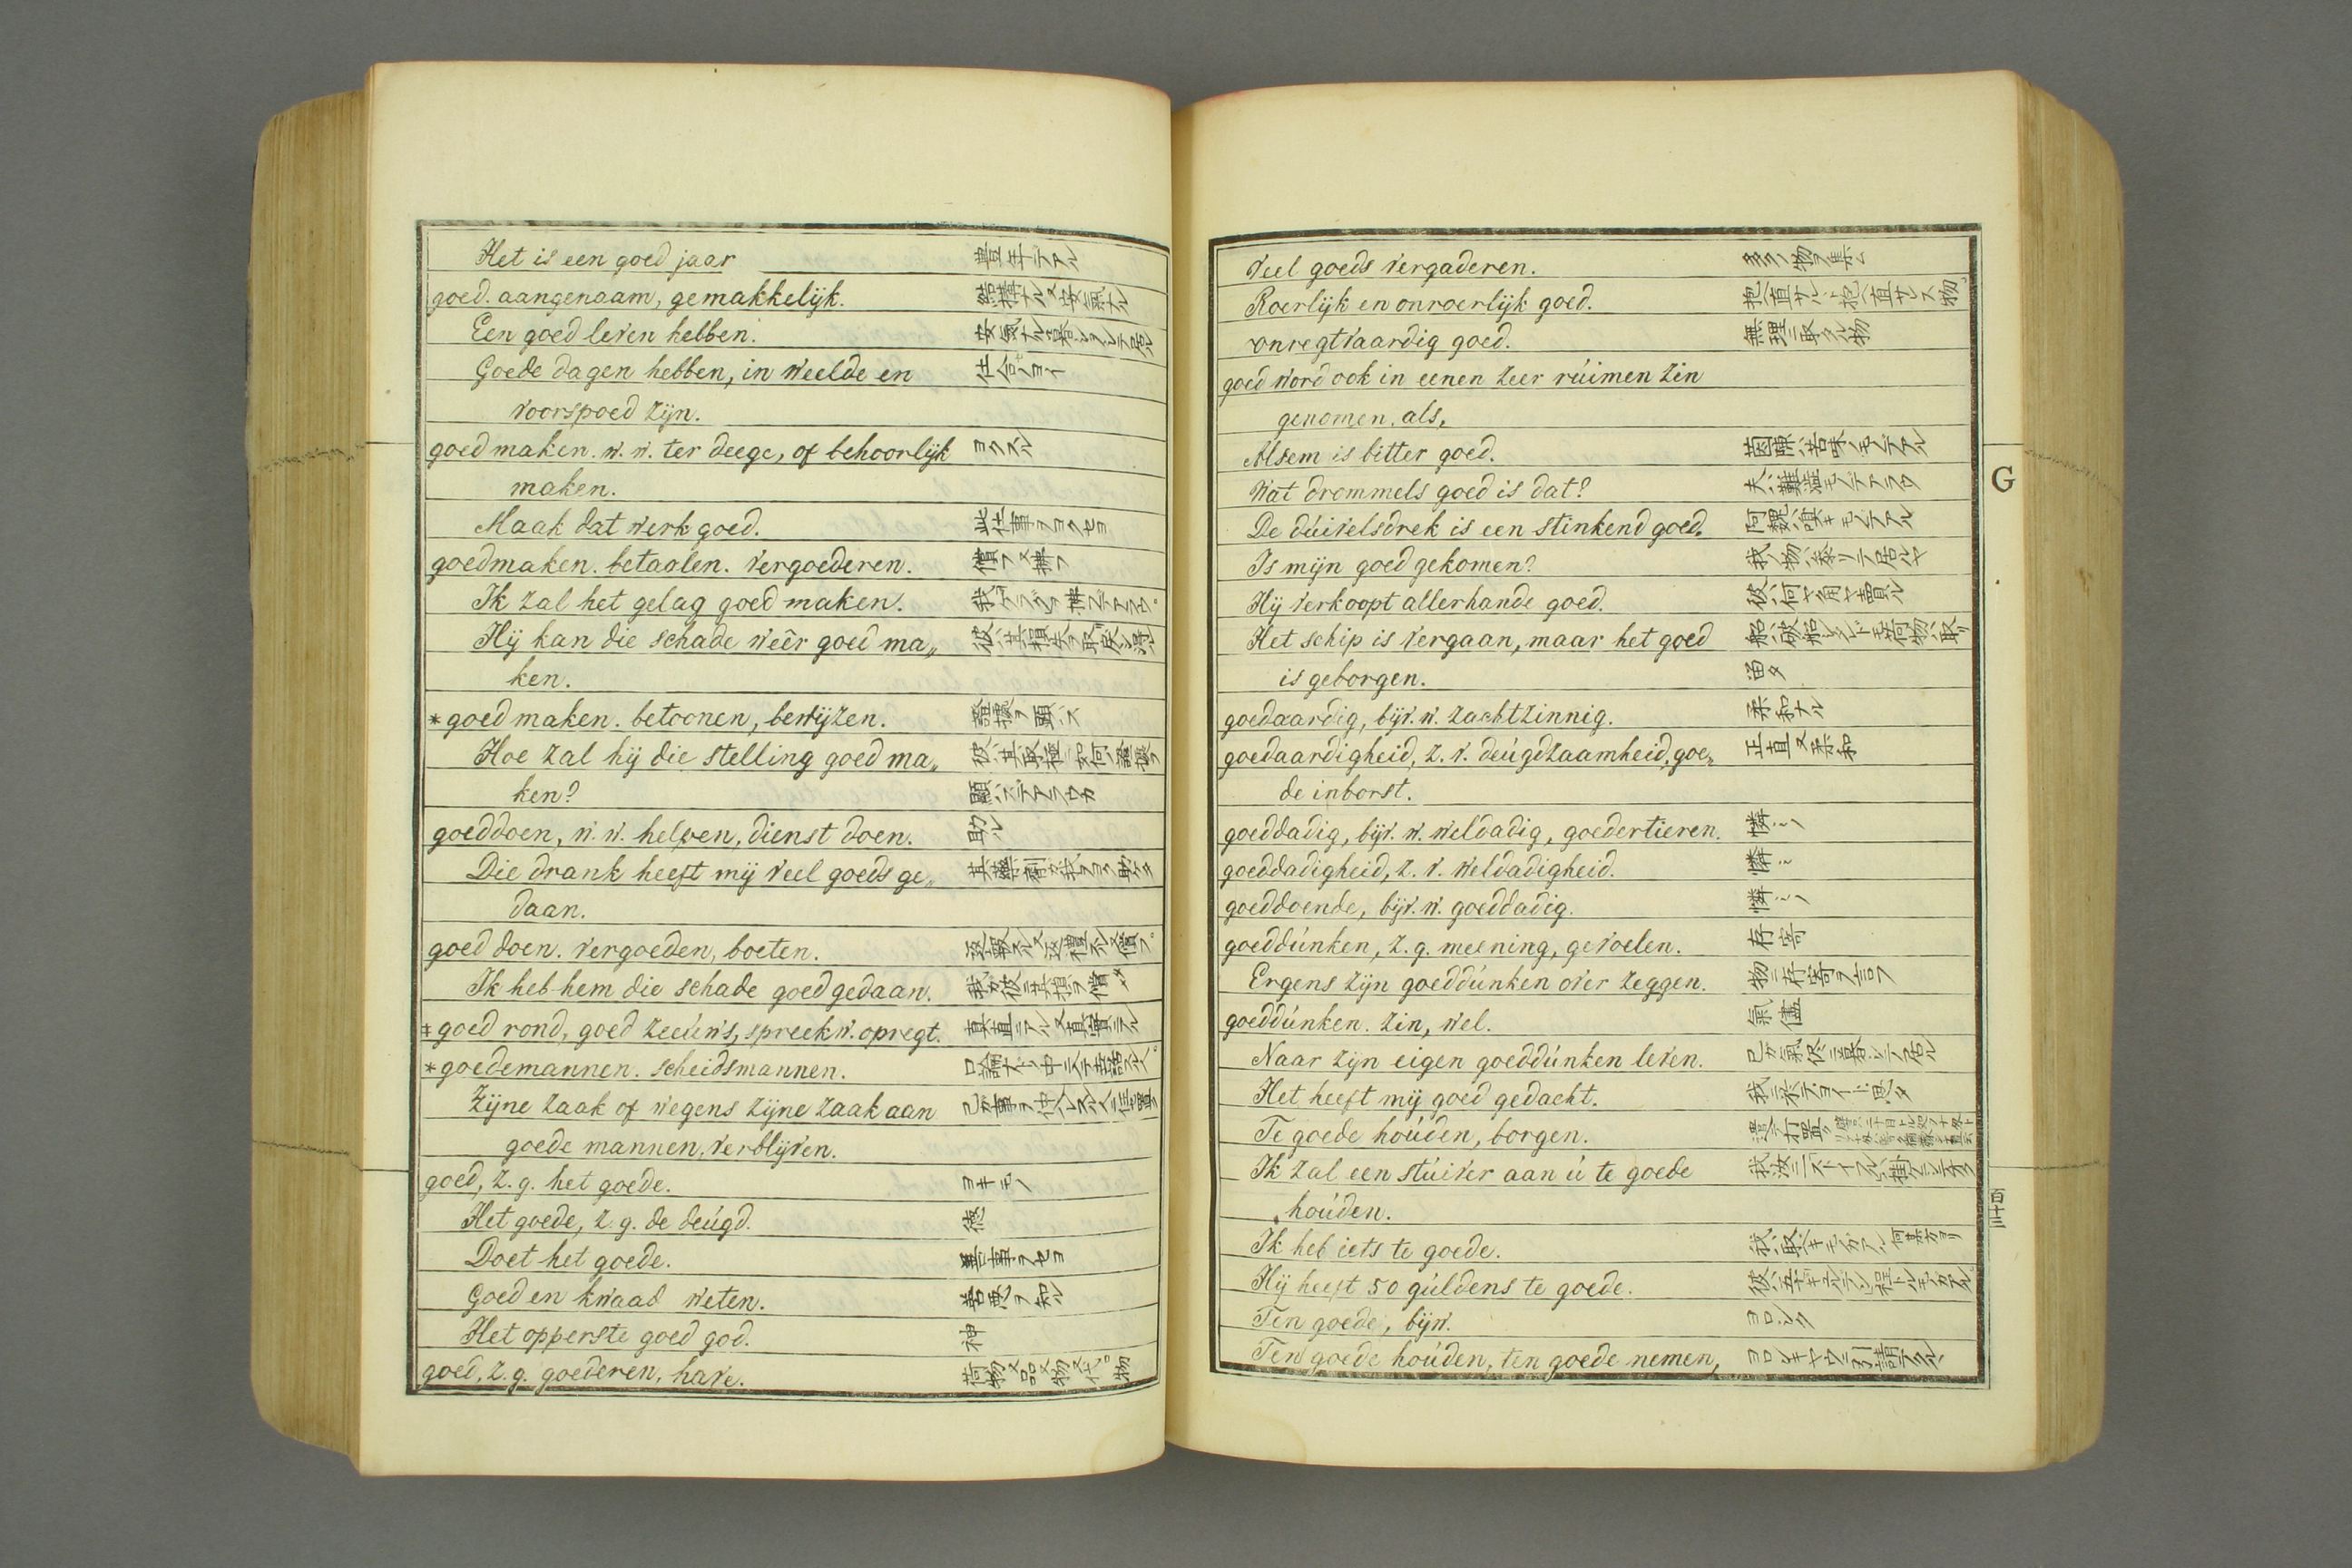 Het is een goed jaar 豊年テアル
goed. aangenaam, gemakkelijk. 結構ナル又安氣ナル
Een goed leven hebben. 安氣ナル暮シヲシテ居ル
Goede dagen hebben, in weelde en 仕合ヨイ
voorspoed zijn.
goed maken. w. w. ter deege, of behoorlijk ヨクスル
maken.
Maak dat werk goed. 此仕事ヲヨクセヨ
goedmaken. betaalen. vergoederen. 償フ又拂フ
Ik zal het gelag goed maken.
Hij kan die schade weêr goed ma„ 彼ハ其損失ヲ取戻シ得ル
ken.
*goed maken. betoonen, bewijzen. 證據ヲ顯ハス
Hoe zal hij die stelling goed ma„
ken? 顯ハスデアラウカ
goeddoen, w. w. helpen, dienst doen. 助ル
Die drank heeft mij veel goeds ge„
daan.
goed doen. vergoeden, boeten.
Ik heb hem die schade goed gedaan. 我ガ彼ニ其損ヲ償タ
*goed rond, goed zeeuws, spreekw. opregt. 真直ニアル又真實ニアル
*goedemannen. scheidsmannen.
Zijne zaak of wegens zijne zaak aan
goede mannen, verblijven.
goed, z. g. het goede. ヨキモノ
Het goede, z. g. de deúgd. 徳
Doet het goede. 善事ヲセヨ
Goed en kwaad weten. 善悪ヲ知ル
Het opperste goed god. 神
goed, z. g. goederen, have. 荷物又品物又代口物
Veel goeds vergaderen. 多ノ物ヲ集ム
Roerlijk en onroerlijk goed.
onregtvaardig goed. 無理ニ取タル物
goed word ook in eenen zeer rúimen zin
genomen, als,
Alsem is bitter goed. 茵蔯ハ苦味ノモノデアル
Wat drommels goed is dat?
De dúivelsdrek is een stinkend goed. 阿魏ハ嗅キモノデアル
Is mijn goed gekomen? 我ノ物ハ参リテ居ルヤ
Hij verkoopt allerhande goed. 彼ハ何ヤ角ヤ賣ル
Het schip is vergaan, maar het goed 船ハ破船シタレドモ荷物ハ取リ
is geborgen. 留タ
goedaardig, bijv. w. zachtzinnig. 柔和ナル
goedaardigheid, z. v. deúgdzaamheid, goe„ 正直又柔和
de inborst.
goeddadig, bijv. w. weldadig, goedertieren. 憐ミノ
goeddadigheid, z. v. weldadigheid. 憐ミ
goeddoende, bijv. w. goeddadig. 憐ミノ
goeddúnken, z. g. meening, gevoelen. 存寄
Ergens zijn goeddúnken over zeggen. 物ニ存寄ヲ言フ
goeddúnken. zin, wel. 氣儘
Naar zijn eigen goeddúnken leven. 己ガ氣侭ニ暮シテ居ル
Het heeft mij goed gedacht.
Te goede hoúden, borgen.
Ik zal een stúiver aan ú te goede
hoúden.
Ik heb iets te goede.
Hij heeft 50 gúldens te goede.
Ten goede, bijw. ヨロシク
Ten goede hoúden, ten goede nemen,
G
百三十三